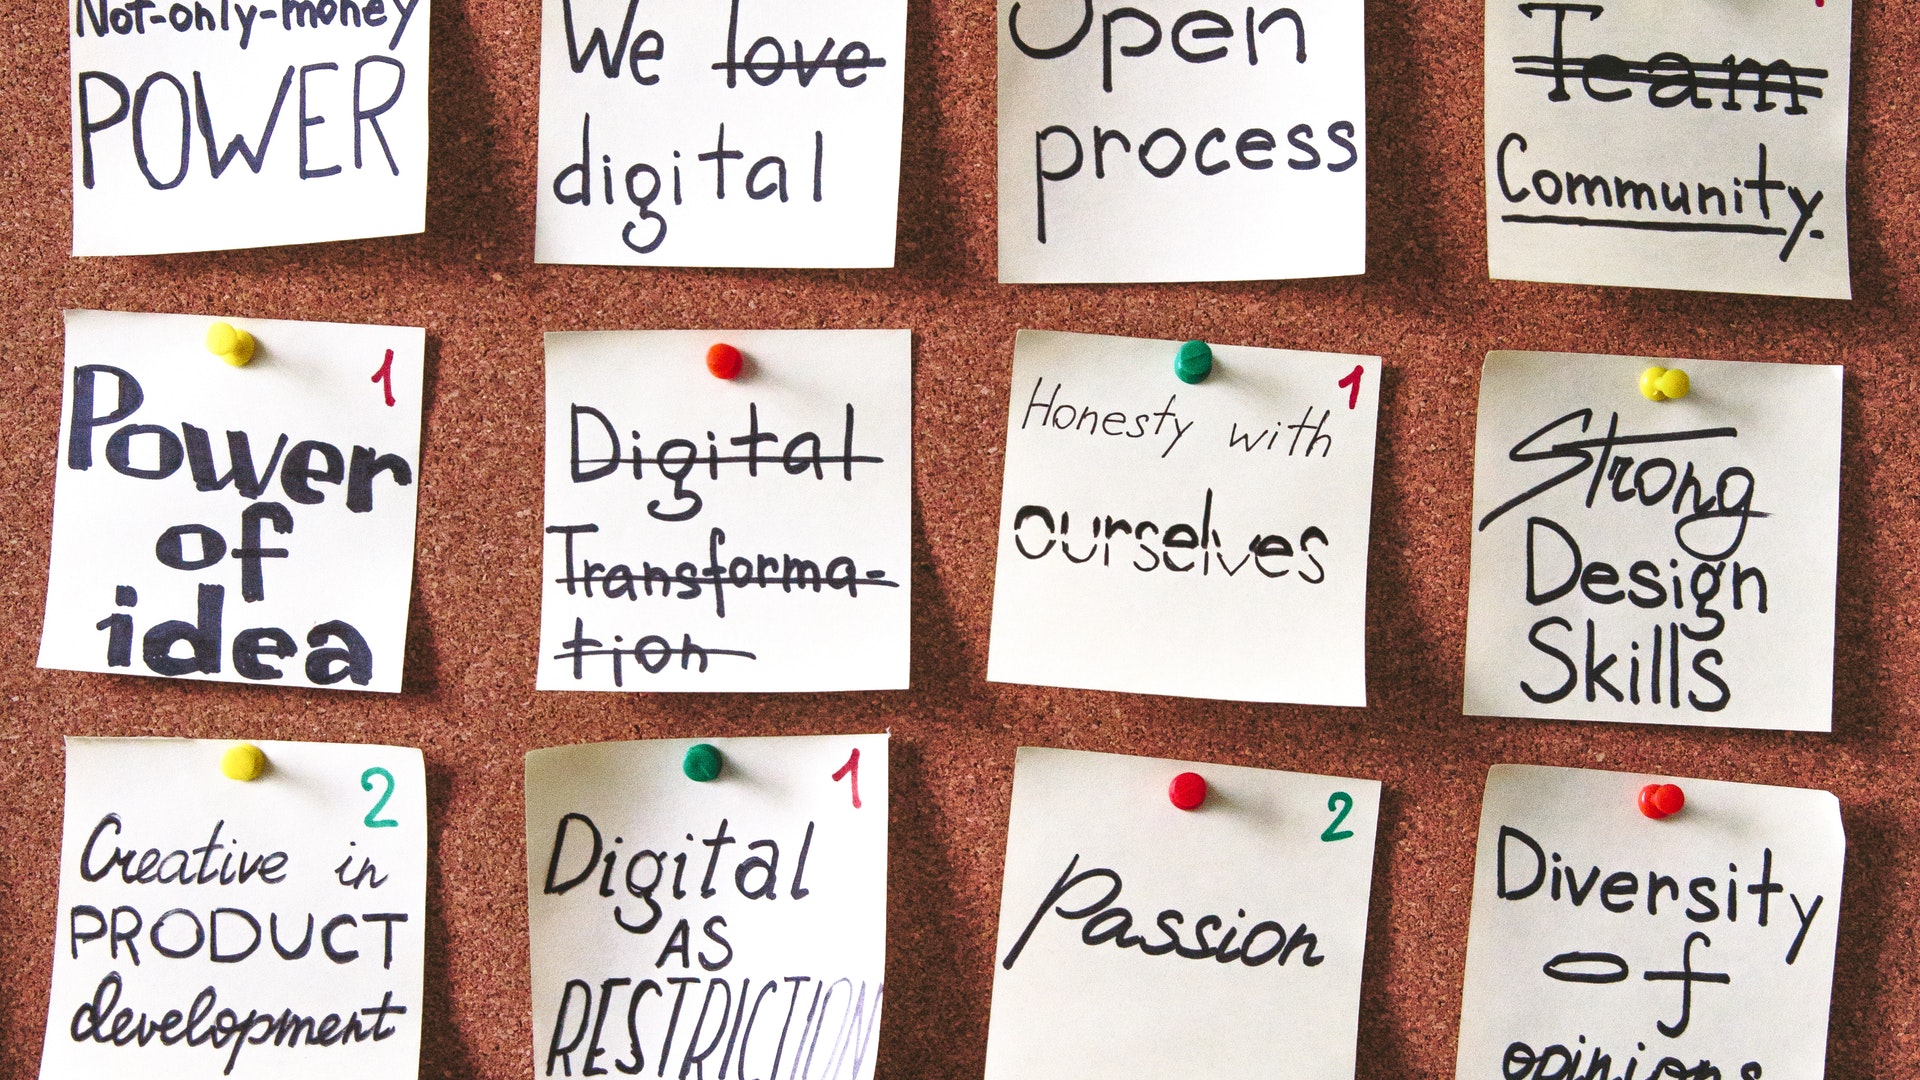 Not-only-money
POWER
We love
digital
Open
process
Team
Community.
1
Power
of
idea
Digital
Transforma-
tion
1
Honesty with
ourselves
Strong
Design
Skills
2
Creative in
PRODUCT
development
1
Digital
AS
RESTRICTION
2
Passion
Diversity
of
opinions